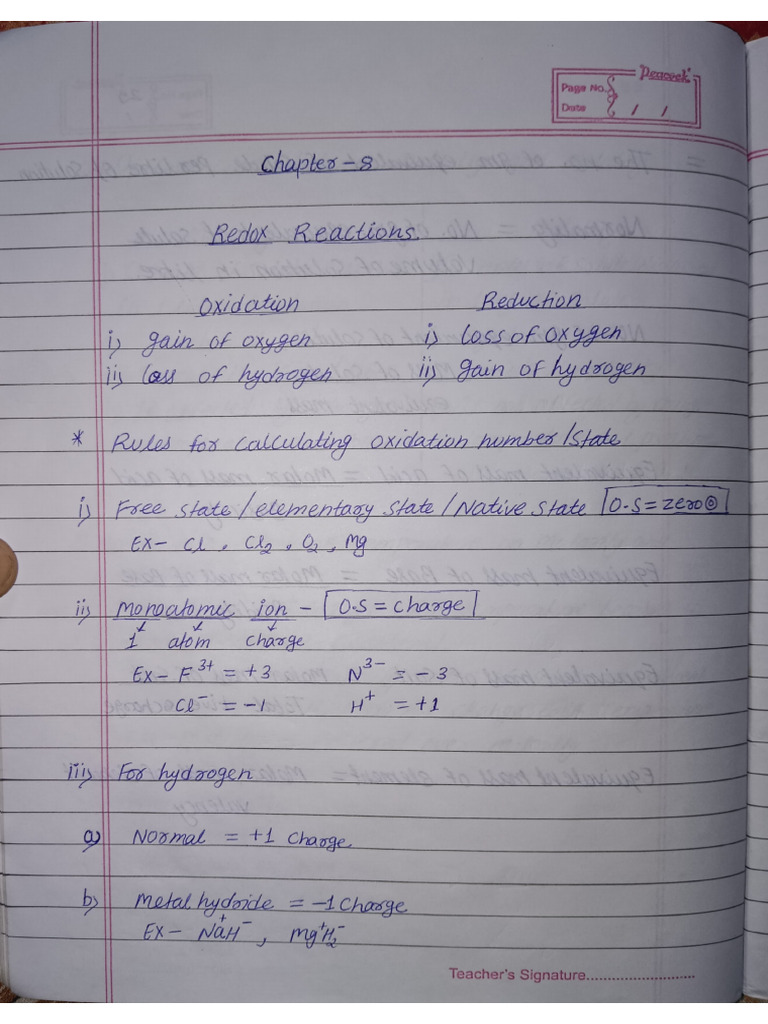 Peacock
Page No.
Date / /
Chapter - 8
Redox Reactions
Oxidation Reduction
i) gain of oxygen i) loss of oxygen
ii) loss of hydrogen ii) gain of hydrogen
* Rules for calculating oxidation number/State
i) Free state/elementary state/Native state O.S = zero 0
Ex- Cl, Cl2, O2, Mg
ii) Monoatomic ion - O.S = charge
1 atom charge
Ex- F³⁺ = +3 N³⁻ = -3
Cl⁻ = -1 H⁺ = +1
iii) For hydrogen
a) Normal = +1 charge
b) Metal hydride = -1 charge
Ex- Na⁺H⁻, Mg⁺H₂⁻
Teacher's Signature..........................